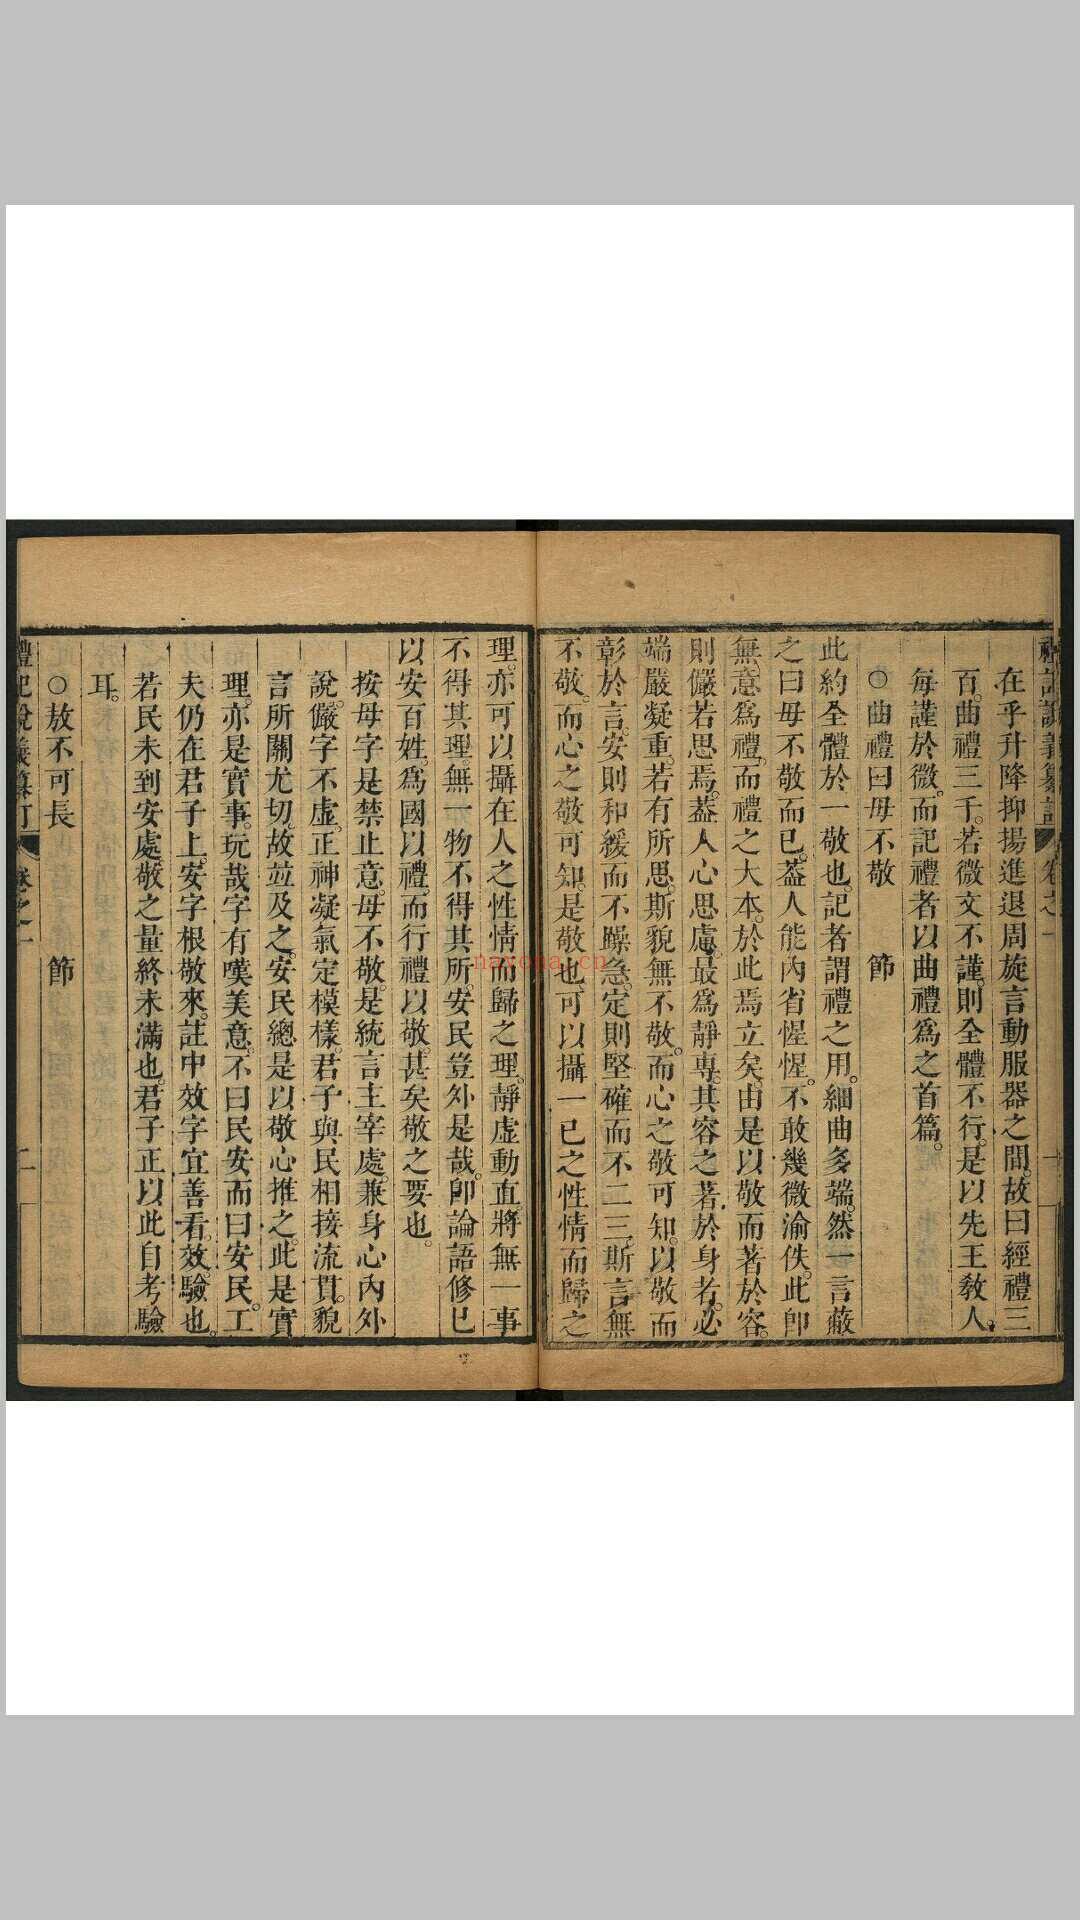 禮記說義纂訂 卷之一
在乎升降抑揚進退周旋言動服器之間。故曰經禮三
百。曲禮三千。若微文不謹。則全體不行。是以先王敎人。
每謹於微。而記禮者以曲禮爲之首篇。
○曲禮曰毋不敬 節
此約全體於一敬也。記者謂禮之用。細曲多端。然一言蔽
之曰毋不敬而已。葢人能內省惺惺。不敢幾微渝佚。此卽
無意爲禮。而禮之大本。於此焉立矣。由是以敬而著於容。
則儼若思焉。葢人心思慮。最爲靜專。其容之著於身者。必
端嚴凝重。若有所思。斯貌無不敬。而心之敬可知。以敬而
彰於言。安則和緩而不躁急。定則堅確而不二三。斯言無
不敬。而心之敬可知。是敬也。可以攝一已之性情而歸之
理。亦可以攝在人之性情而歸之理。靜虛動直。將無一事
不得其理。無一物不得其所。安民豈外是哉。卽論語修已
以安百姓。爲國以禮。而行禮以敬。甚矣敬之要也。
按毋字是禁止意。毋不敬。是統言主宰處。兼身心內外
說。儼字不虛。正神凝氣定模樣。君子與民相接流貫。貌
言所關尤切。故並及之。安民總是以敬心推之。此是實
理。亦是實事。玩哉字有嘆美意。不曰民安而曰安民。工
夫仍在君子上。安字根敬來。註中效字宜善看。效。驗也。
若民未到安處。敬之量終未滿也。君子正以此自考驗
耳。
○敖不可長 節
禮記說義纂訂 卷之一 二
naxona.cn